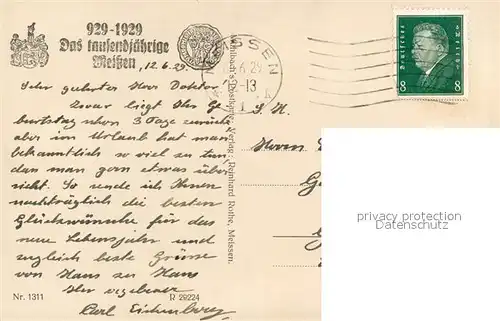 929-1929
Das tausendjährige
Meißen
MEISSEN
12.6.29.
Sehr geehrter Herr Doktor!
Zwar liegt Ihr Ge-
burtstag schon 3 Tage zurück
aber im Urlaub hat man
bekanntlich so viel zu tun,
dan man gern etwas über-
sieht. So sende ich Ihnen
nachträglich die besten
Glückwünsche für das
neue Lebensjahr und
zugleich beste Grüsse
von Haus zu Haus
Ihr ergebener
Carl
Nr. 1311
R 29224
Verlag: Reinhard Rothe, Meissen.
Deutsches Reich
8 8
S. H.
Herrn
privacy protection
Datenschutz